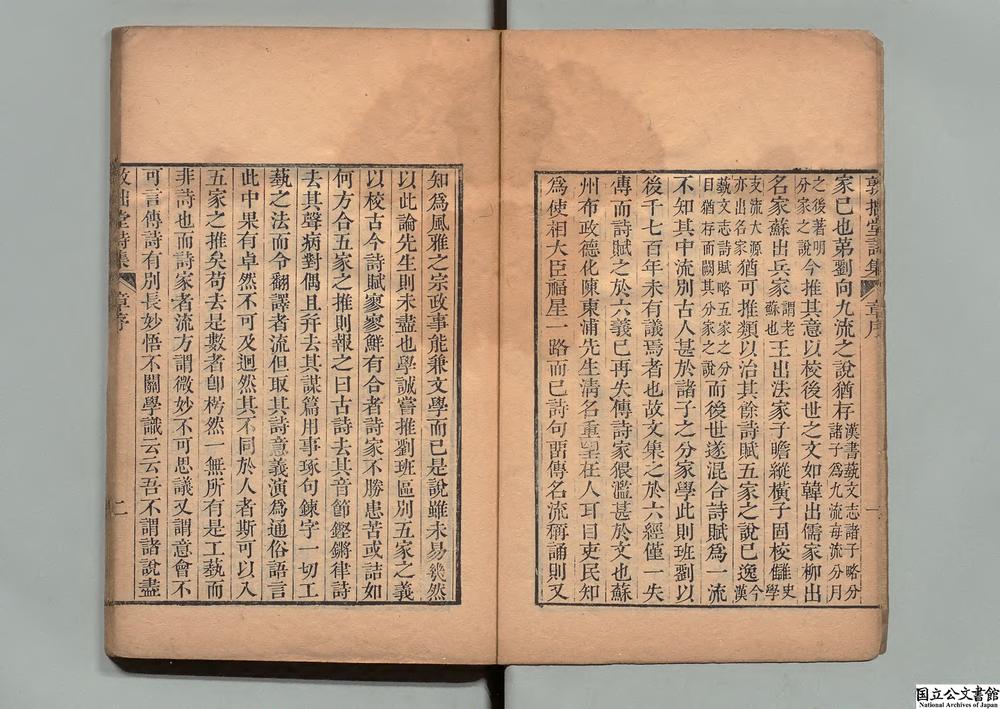 敦拙堂詩集 章序 一
家已也弟劉向九流之說猶存漢書藝文志諸子略分
諸子爲九流每流分月
之後著明
分家之說今推其意以校後世之文如韓出儒家柳出
名家蘇出兵家謂老
蘇也王出法家子瞻縱橫子固校讎史
學
支流大源
亦出名家猶可推類以治其餘詩賦五家之說已逸今
漢
藝文志詩賦略五家之分
目猶存而闕其分家之說而後世遂混合詩賦爲一流
不知其中流別古人甚於諸子之分家學此則班劉以
後千七百年未有議焉者也故文集之於六經僅一失
傳而詩賦之於六義已再失傳詩家猥濫甚於文也蘇
州布政德化陳東浦先生淸名重望在人耳目吏民知
爲使相大臣福星一路而已詩句留傳名流稱誦則又
知爲風雅之宗政事能兼文學而已是說雖未易幾然
以此論先生則未盡也學誠嘗推劉班區別五家之義
以校古今詩賦寥寥鮮有合者詩家不勝患苦或詰如
何方合五家之推則報之曰古詩去其音節鏗鏘律詩
去其聲病對偶且幷去其謀篇用事琢句鍊字一切工
藝之法而令翻譯者流但取其詩意義演爲通俗語言
此中果有卓然不可及迥然其不同於人者斯可以入
五家之推矣苟去是數者卽枵然一無所有是工藝而
非詩也而詩家者流方謂微妙不可思議又謂意會不
可言傳詩有別長妙悟不關學識云云吾不謂諸說盡
敦拙堂詩集 章序 二
国立公文書館
National Archives of Japan